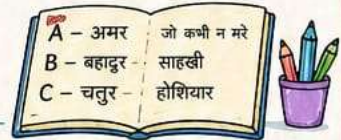 A – अमर जो कभी न मरे
B – बहादुर – साहखी
C – चतुर – होशियार